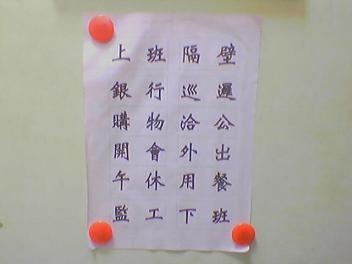 上班隔壁
銀行巡邏
購物洽公
開會外出
午休用餐
監工下班